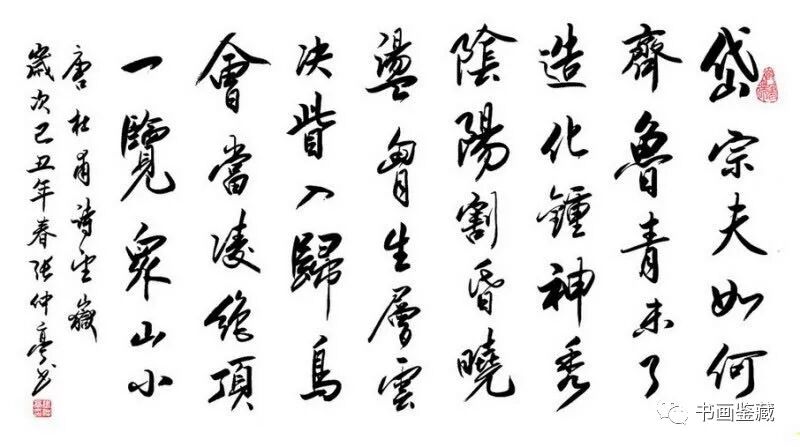 岱宗夫如何
齊魯青未了
造化鍾神秀
陰陽割昏曉
盪胷生層雲
决眥入歸鳥
會當凌絶頂
一覽衆山小
唐杜甫詩望嶽
歲次己丑年春張仲亭书
书画鉴藏